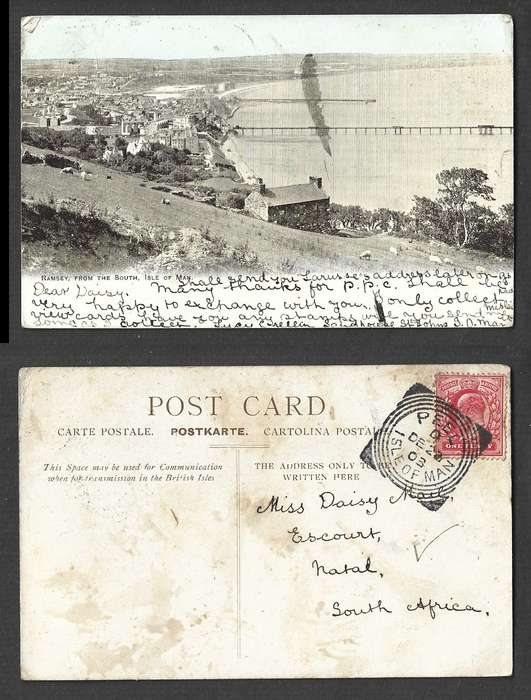 RAMSEY, FROM THE SOUTH, ISLE OF MAN.
shall send you address later on
Dear Daisy, Many thanks for P.P.C. Shall be
very happy to exchange with you. I only collect
view cards. Have you any stamps will you send me
some as I collect. Lucy Crellin Sandhouse St Johns I.O.Man
POST CARD
CARTE POSTALE. POSTKARTE. CARTOLINA POSTALE
This Space may be used for Communication
when for transmission in the British Isles
THE ADDRESS ONLY TO BE
WRITTEN HERE
PEEL
DE 9
03
ISLE OF MAN
ONE PENNY
Miss Daisy
Escourt,
Natal,
South Africa.